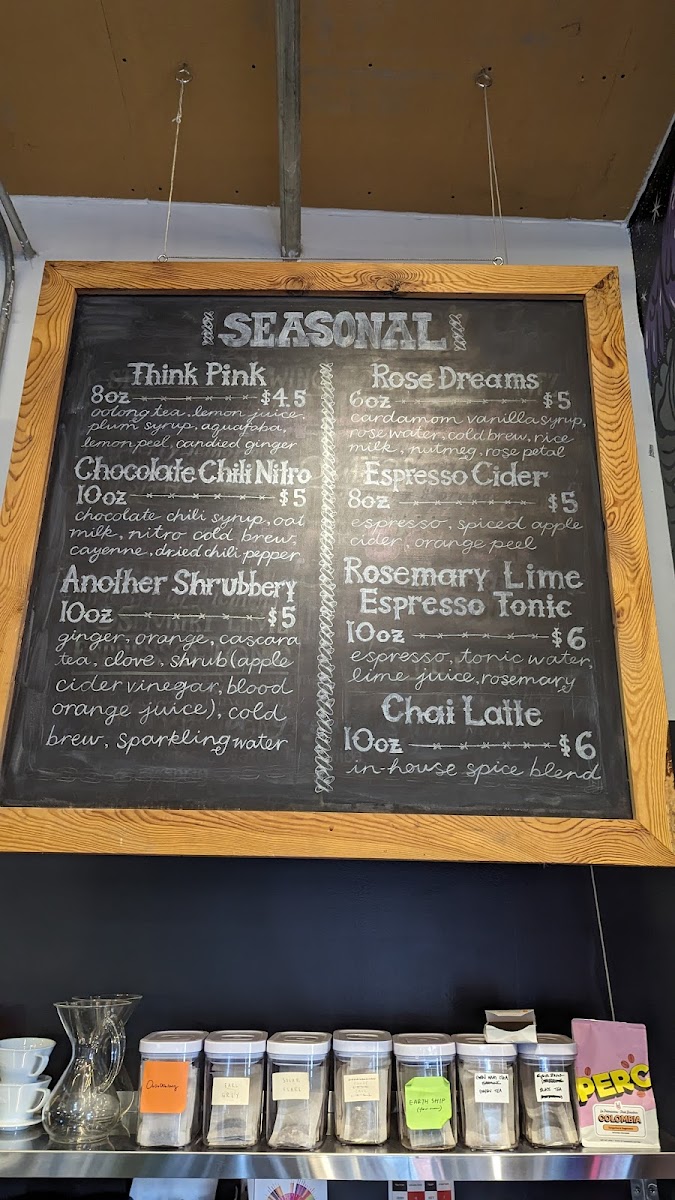 SEASONAL
Think Pink
8oz $4.5
oolong tea, lemon juice,
plum syrup, aquafaba,
lemon peel, candied ginger
Chocolate Chili Nitro
10oz $5
chocolate chili syrup, oat
milk, nitro cold brew,
cayenne, dried chili pepper
Another Shrubbery
10oz $5
ginger, orange, cascara
tea, clove, shrub(apple
cider vinegar, blood
orange juice), cold
brew, sparkling water
Rose Dreams
6oz $5
cardamom vanilla syrup,
rose water, cold brew, rice
milk, nutmeg, rose petal
Espresso Cider
8oz $5
espresso, spiced apple
cider, orange peel
Rosemary Lime
Espresso Tonic
10oz $6
espresso, tonic water,
lime juice, rosemary
Chai Latte
10oz $6
in-house spice blend
EARL
GREY
EARTH SHIP
PERC
COLOMBIA